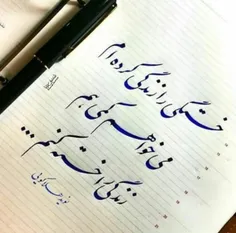 خستگی را زندگی کرده ام
می خواهم کمی هم
زندگی را خسته کنم ...